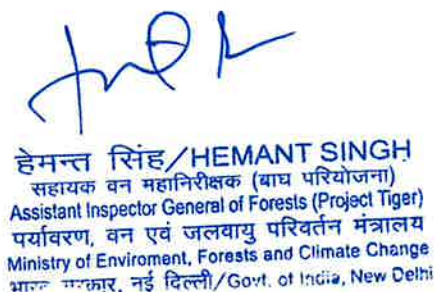 हेमन्त सिंह/HEMANT SINGH
सहायक वन महानिरीक्षक (बाघ परियोजना)
Assistant Inspector General of Forests (Project Tiger)
पर्यावरण, वन एवं जलवायु परिवर्तन मंत्रालय
Ministry of Enviroment, Forests and Climate Change
भारत सरकार, नई दिल्ली/Govt. of India, New Delhi